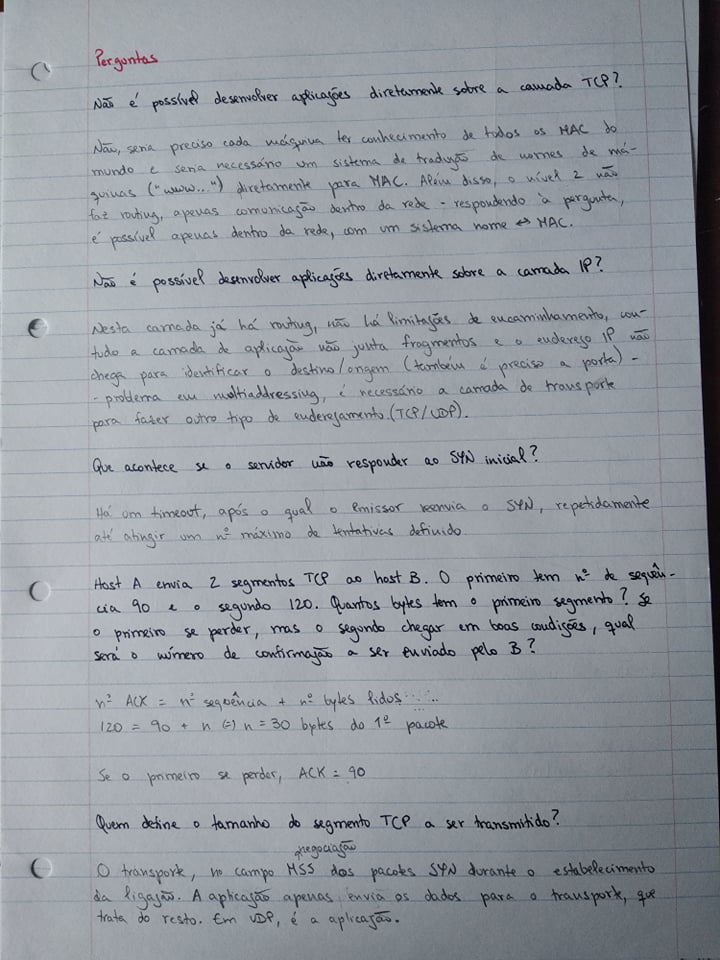 Perguntas
Não é possível desenvolver aplicações diretamente sobre a camada TCP?
Não, seria preciso cada máquina ter conhecimento de todos os MAC do
mundo e seria necessário um sistema de tradução de nomes de má-
quinas ("www...") diretamente para MAC. Além disso, o nível 2 não
faz routing, apenas comunicação dentro da rede - respondendo à pergunta,
é possível apenas dentro da rede, com um sistema nome ↔ MAC.
Não é possível desenvolver aplicações diretamente sobre a camada IP?
Nesta camada já há routing, não há limitações de encaminhamento, con-
tudo a camada de aplicação não junta fragmentos e o endereço IP não
chega para identificar o destino/origem (também é preciso a porta) -
- problema em multiaddressing, é necessário a camada de transporte
para fazer outro tipo de endereçamento (TCP/UDP).
Que acontece se o servidor não responder ao SYN inicial?
Há um timeout, após o qual o emissor reenvia o SYN, repetidamente
até atingir um nº máximo de tentativas definido.
Host A envia 2 segmentos TCP ao host B. O primeiro tem nº de sequên-
cia 90 e o segundo 120. Quantos bytes tem o primeiro segmento? Se
o primeiro se perder, mas o segundo chegar em boas condições, qual
será o número de confirmação a ser enviado pelo B?
nº ACK = nº sequência + nº bytes lidos
120 = 90 + n (=) n = 30 bytes do 1º pacote
Se o primeiro se perder, ACK = 90
Quem define o tamanho do segmento TCP a ser transmitido?
negociação
O transporte, no campo MSS dos pacotes SYN durante o estabelecimento
da ligação. A aplicação apenas envia os dados para o transporte, que
trata do resto. Em UDP, é a aplicação.